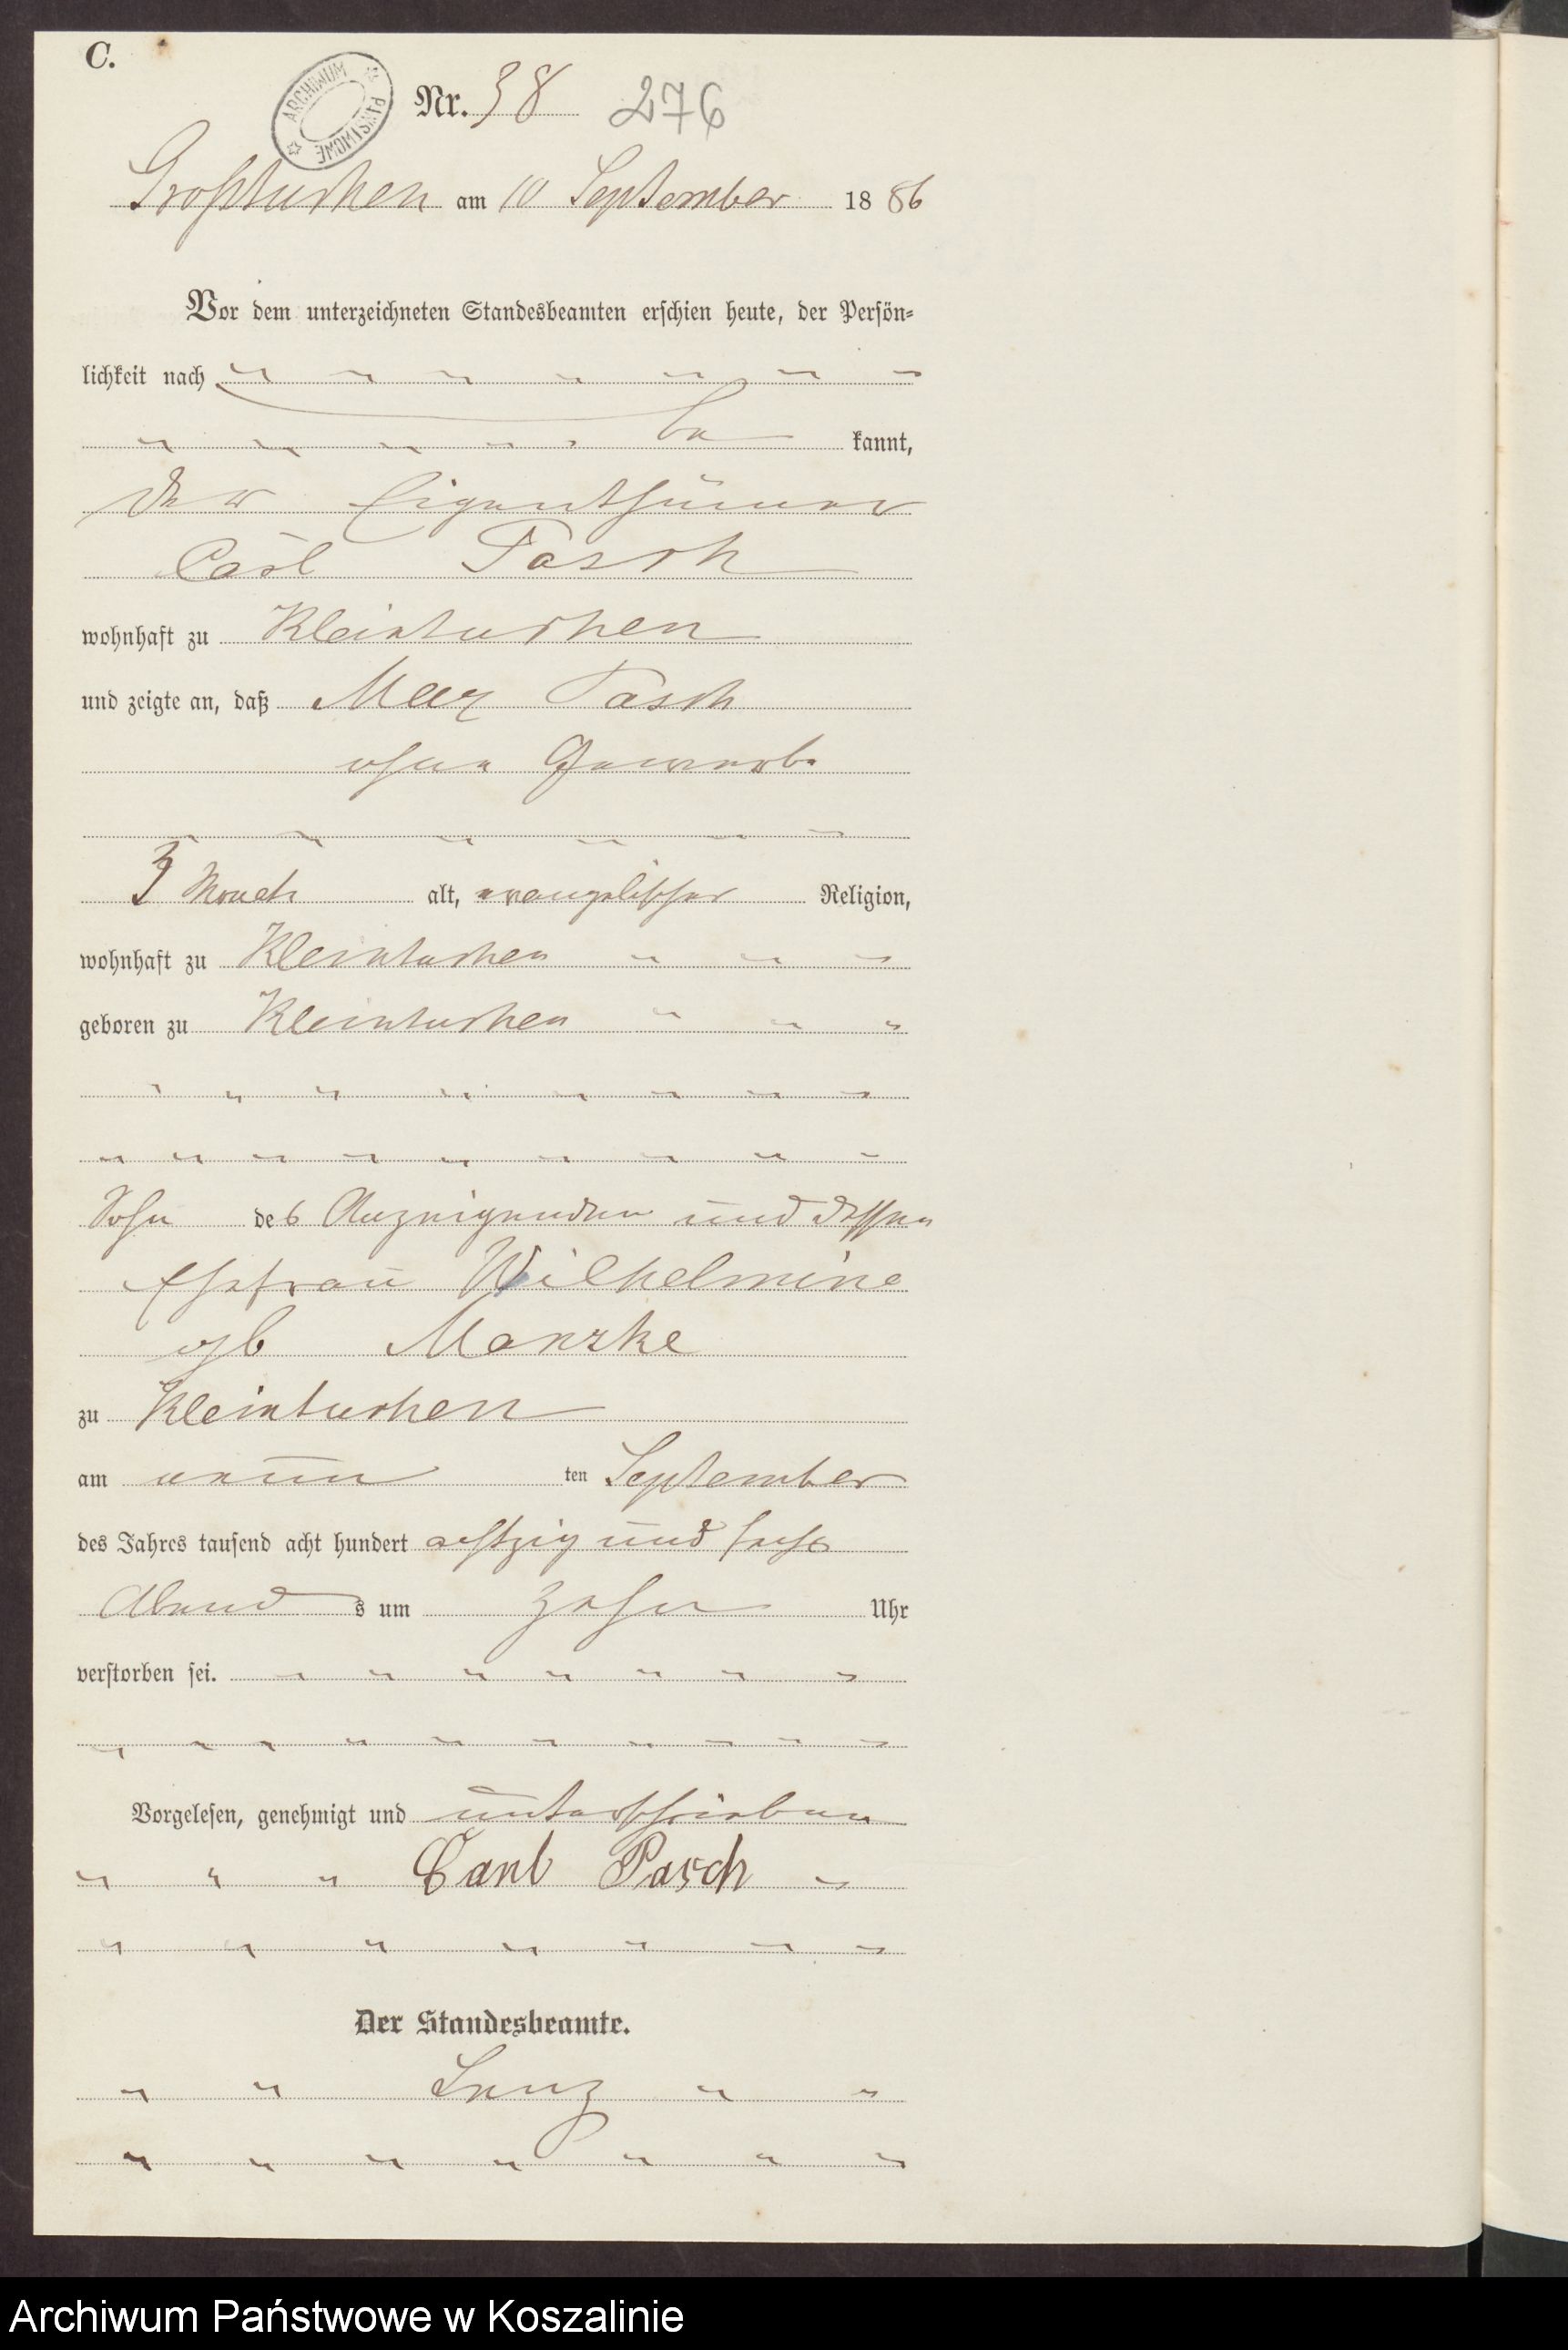 C.
ARCHIWUM PAŃSTWOWE
Nr. 38 276
Großtuchen am 10 September 1886
Vor dem unterzeichneten Standesbeamten erschien heute, der Persön-
lichkeit nach
be kannt,
der Eigenthümer
Carl Pasch
wohnhaft zu Kleintuchen
und zeigte an, daß Max Pasch
ohne Gewerbe
3 Monat alt, evangelischer Religion,
wohnhaft zu Kleintuchen
geboren zu Kleintuchen
Sohn des Anzeigenden und dessen
Ehefrau Wilhelmine
geb Manzke
zu Kleintuchen
am neun ten September
des Jahres tausend acht hundert achtzig und sechs
Abend s um zehn Uhr
verstorben sei.
Vorgelesen, genehmigt und unterschrieben
Carl Pasch
Der Standesbeamte.
Lenz
Archiwum Państwowe w Koszalinie